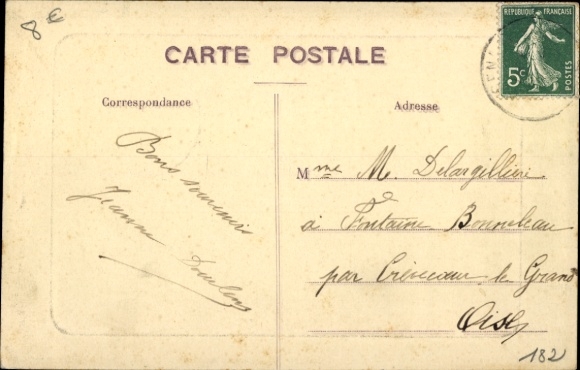 8 €
RÉPUBLIQUE FRANÇAISE
5 c
POSTES
CARTE POSTALE
Correspondance
Adresse
Bons souvenirs
Jeanne
Mme M. Delargillière
à Fontaine Bonneleau
par Crèvecoeur le Grand
Oise
182